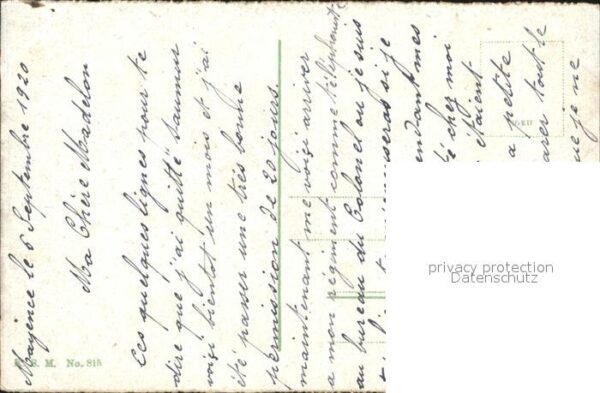 Mayence le 6 Septembre 1920
Ma Chère Madelon
Ces quelques lignes pour te
dire que j'ai quitté Saumur
voici bientot un mois et j'ai
été passer une très bonne
permission de 20 jours.
maintenant me voici arriver
a mon régiment comme téléphoniste
au bureau du Colonel ou je suis
seras si je
pendant mes
chez moi
étaient
a petite
tout le
que je ne
S. M. No. 815
privacy protection
Datenschutz